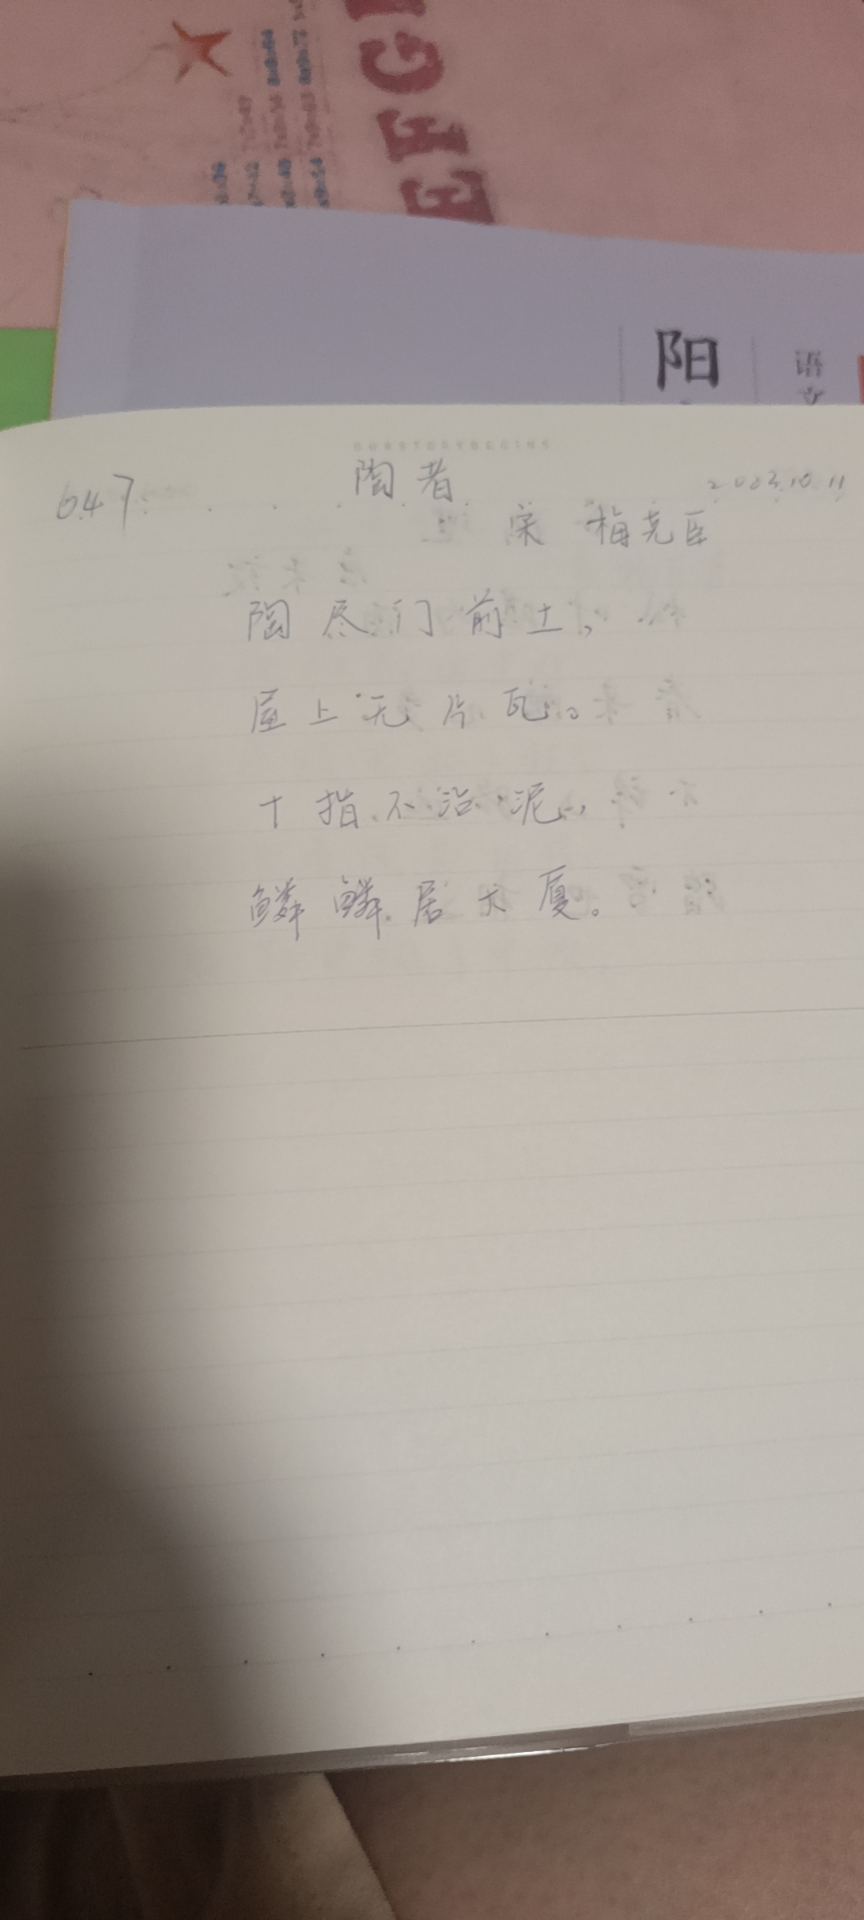 GEE
阳
语文
647
陶者
2023.10.11
宋 梅尧臣
陶尽门前土，
屋上无片瓦。
十指不沾泥，
鳞鳞居大厦。